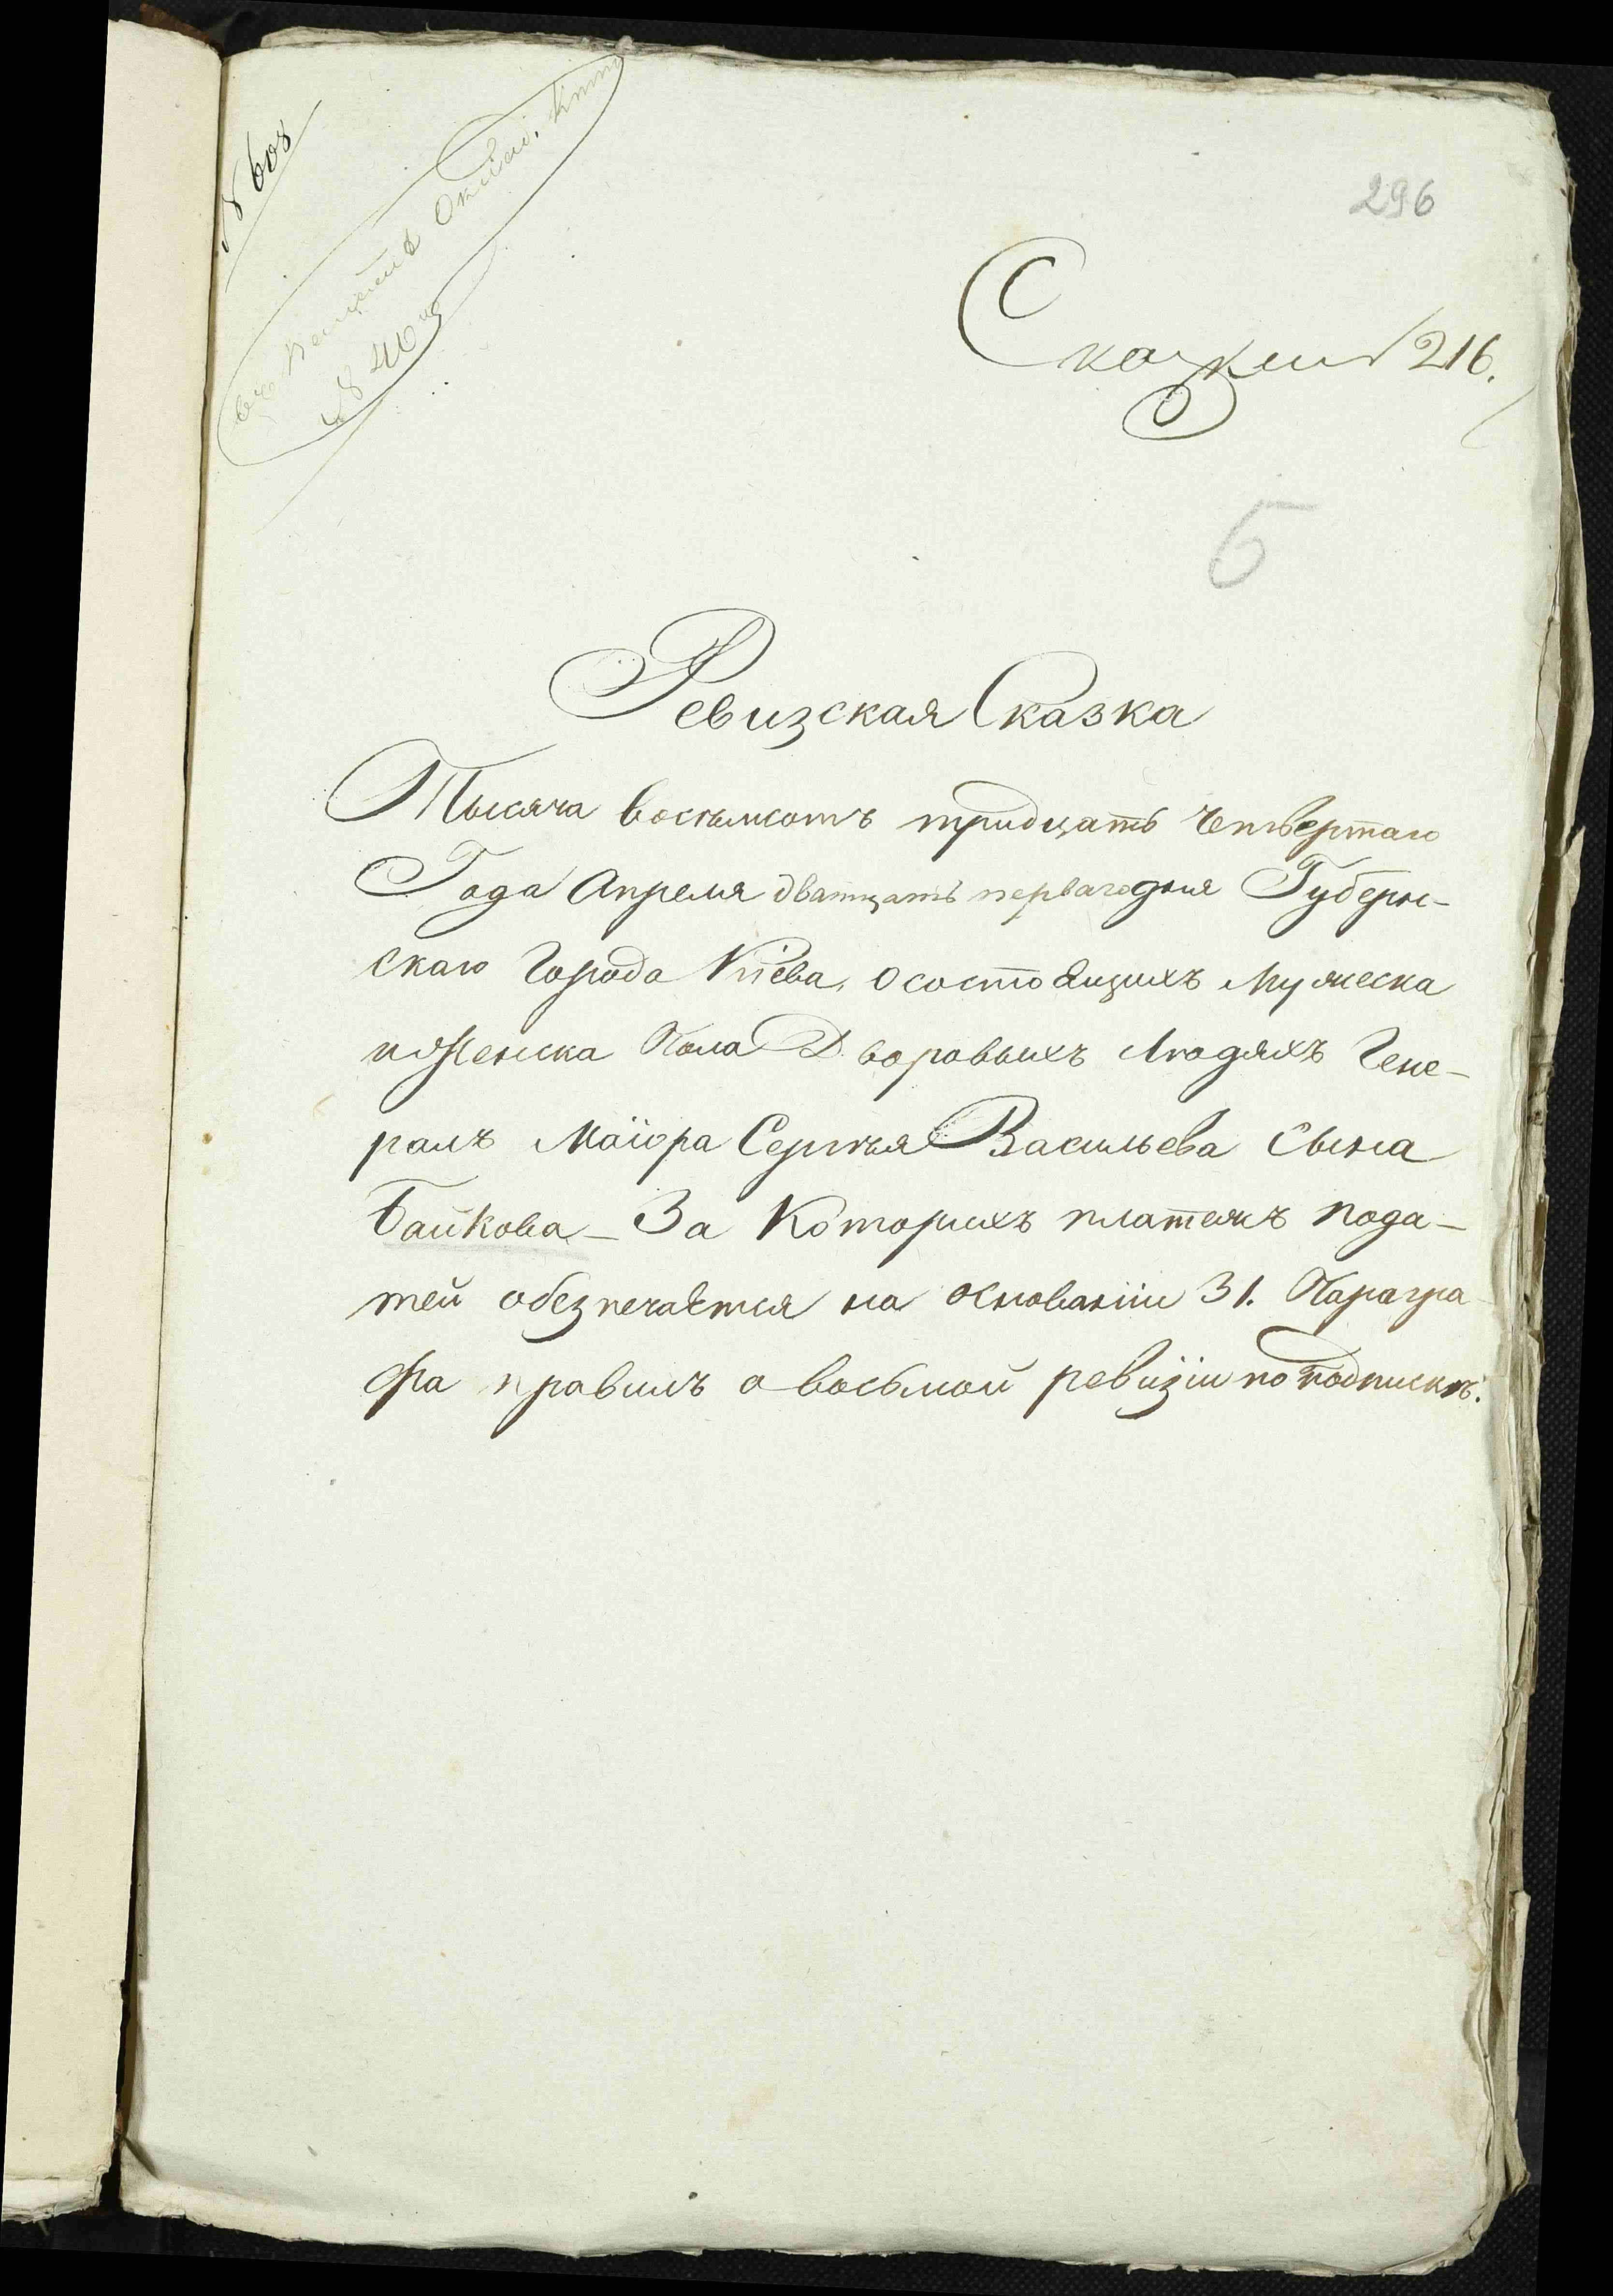 № 608
296
Сказки № 216.
5
Ревизская Сказка
Тысяча восемьсотъ тридцать Четвертаго
Года Апреля дватцать перваго дня Губерн-
скаго Города Кіева, о состоящихъ Мужеска
и Женска Пола Дворовыхъ Людяхъ Гене-
ралъ Маіора Сергѣя Васильева Сына
Байкова – За Которыхъ платежъ пода-
тей обезпечается на основаніи 31. Парагра-
фа правилъ о восьмой ревизіи по подпискѣ.